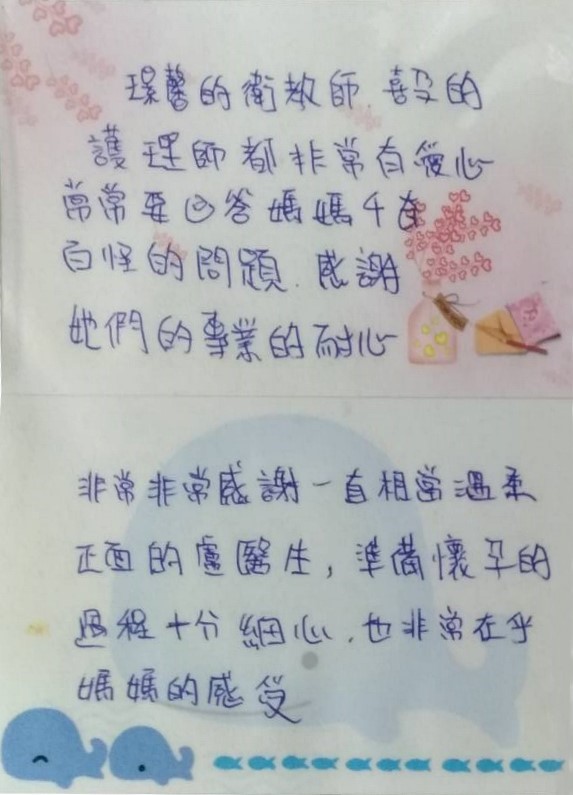 環馨的衛教師、喜孕的
護理師都非常有愛心
常常要回答媽媽千奇
百怪的問題、感謝
她們的專業的耐心
非常非常感謝一直相當溫柔
正面的盧醫生，準備懷孕的
過程十分細心、也非常在乎
媽媽的感受